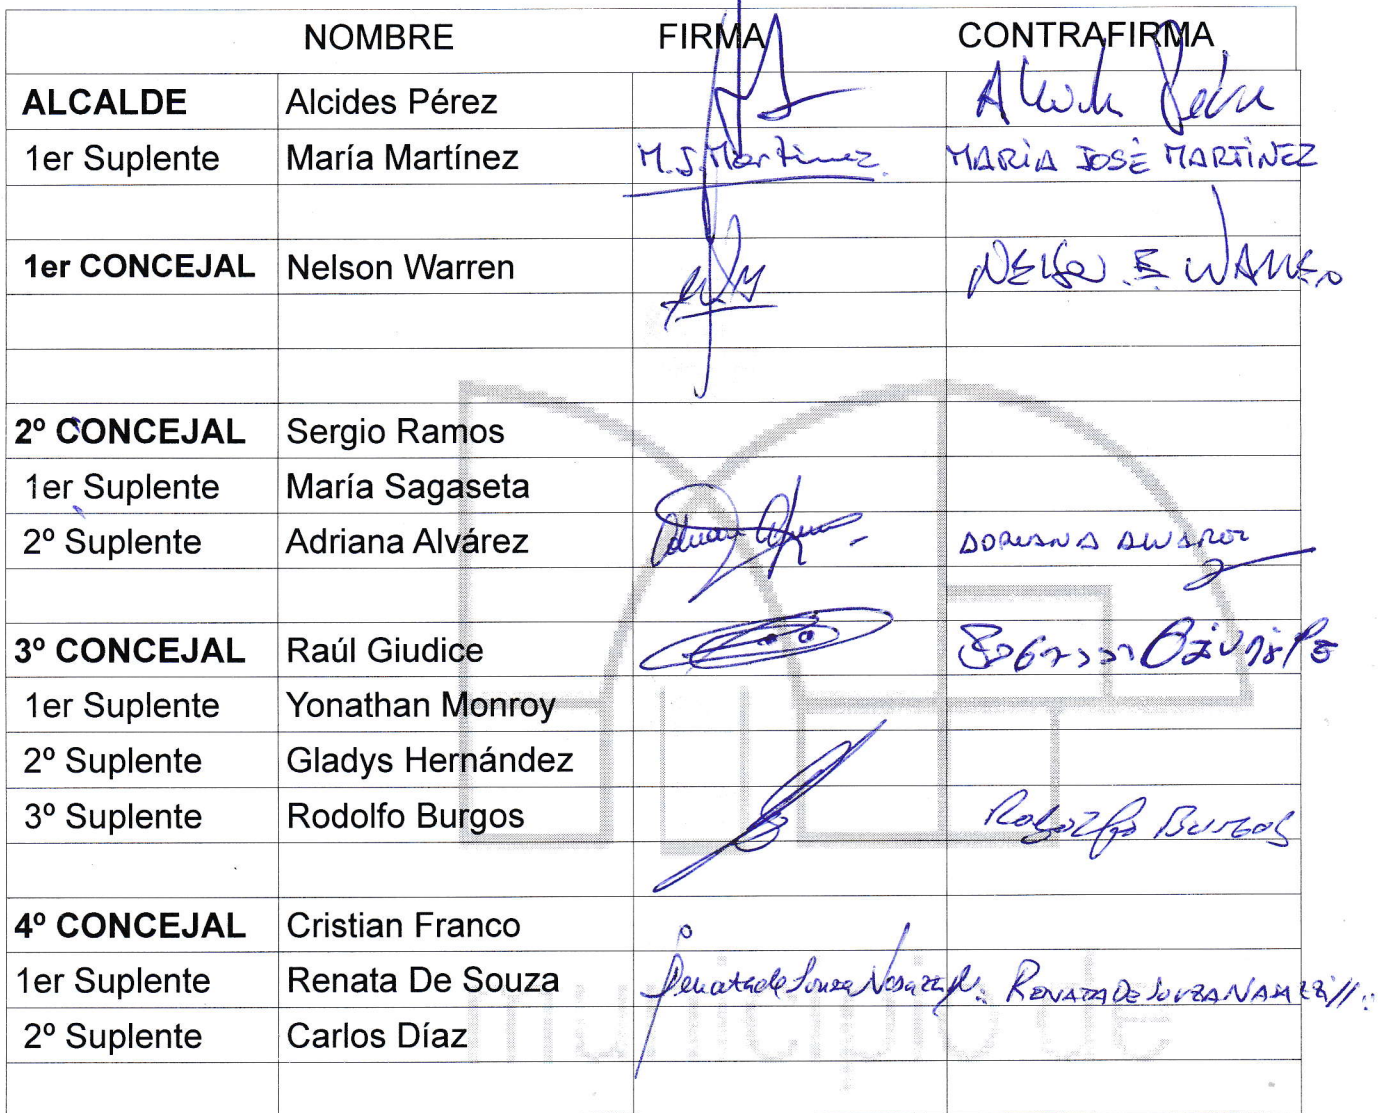 NOMBRE FIRMA CONTRAFIRMA
ALCALDE Alcides Pérez
1er Suplente María Martínez M. J. Martinez MARIA JOSÉ MARTÍNEZ
1er CONCEJAL Nelson Warren NELSON E WARREN
2º CONCEJAL Sergio Ramos
1er Suplente María Sagaseta
2º Suplente Adriana Alvárez ADRIANA ALVAREZ
3º CONCEJAL Raúl Giudice
1er Suplente Yonathan Monroy
2º Suplente Gladys Hernández
3º Suplente Rodolfo Burgos Rodolfo Burgos
4º CONCEJAL Cristian Franco
1er Suplente Renata De Souza Renata de Souza RENATA DE SOUZA
2º Suplente Carlos Díaz
municipio de